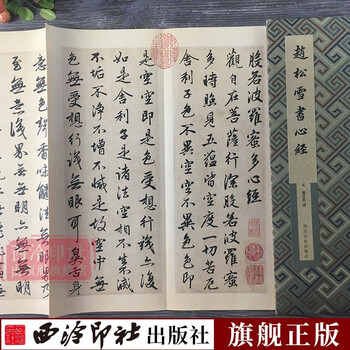 趙松雪書心經
般若波羅蜜多心經
觀自在菩薩行深般若波羅蜜
多時照見五蘊皆空度一切苦厄
舍利子色不異空空不異色色即
是空空即是色受想行識亦復
如是舍利子是諸法空相不生不滅
不垢不淨不增不減是故空中無
色無受想行識無眼耳鼻舌身
意無色聲香味觸法無
至無意識界無無明亦無無明
西泠印社
西泠印社出版社
旗舰正版